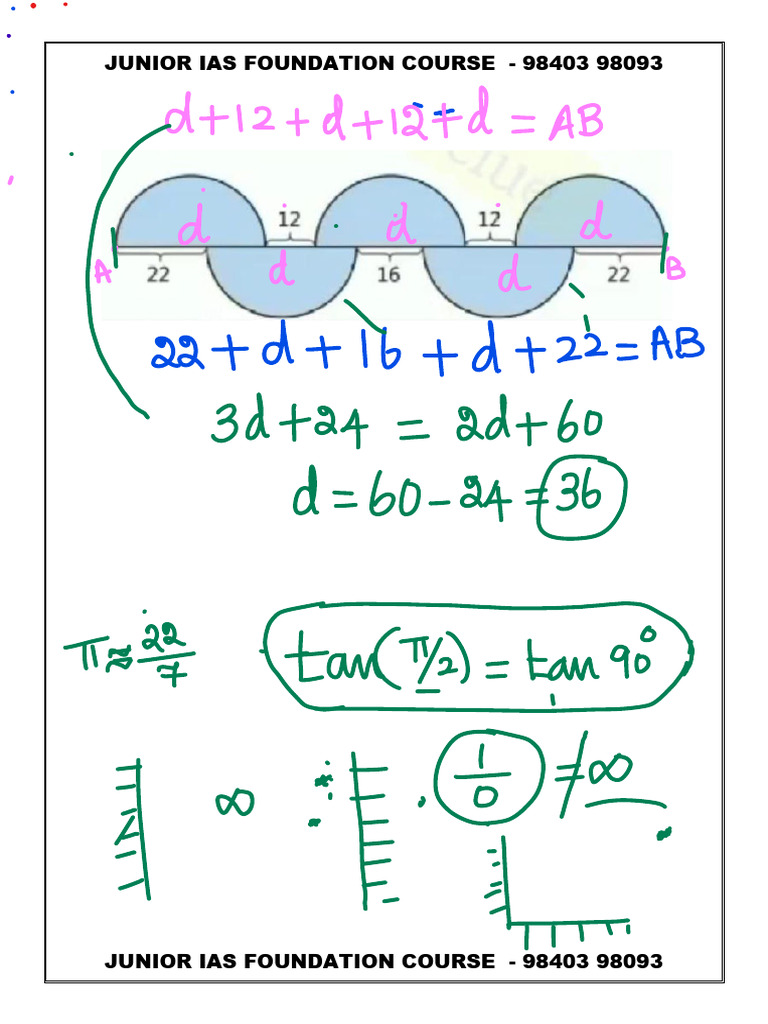 JUNIOR IAS FOUNDATION COURSE - 98403 98093
d+12+d+12+d = AB
d 12 d 12 d
A 22 d 16 d 22 B
22+d+16+d+22=AB
3d+24 = 2d+60
d = 60-24 = 36
π≈22/7 tan(π/2) = tan 90°
∞ 1/0 ≠ ∞
JUNIOR IAS FOUNDATION COURSE - 98403 98093